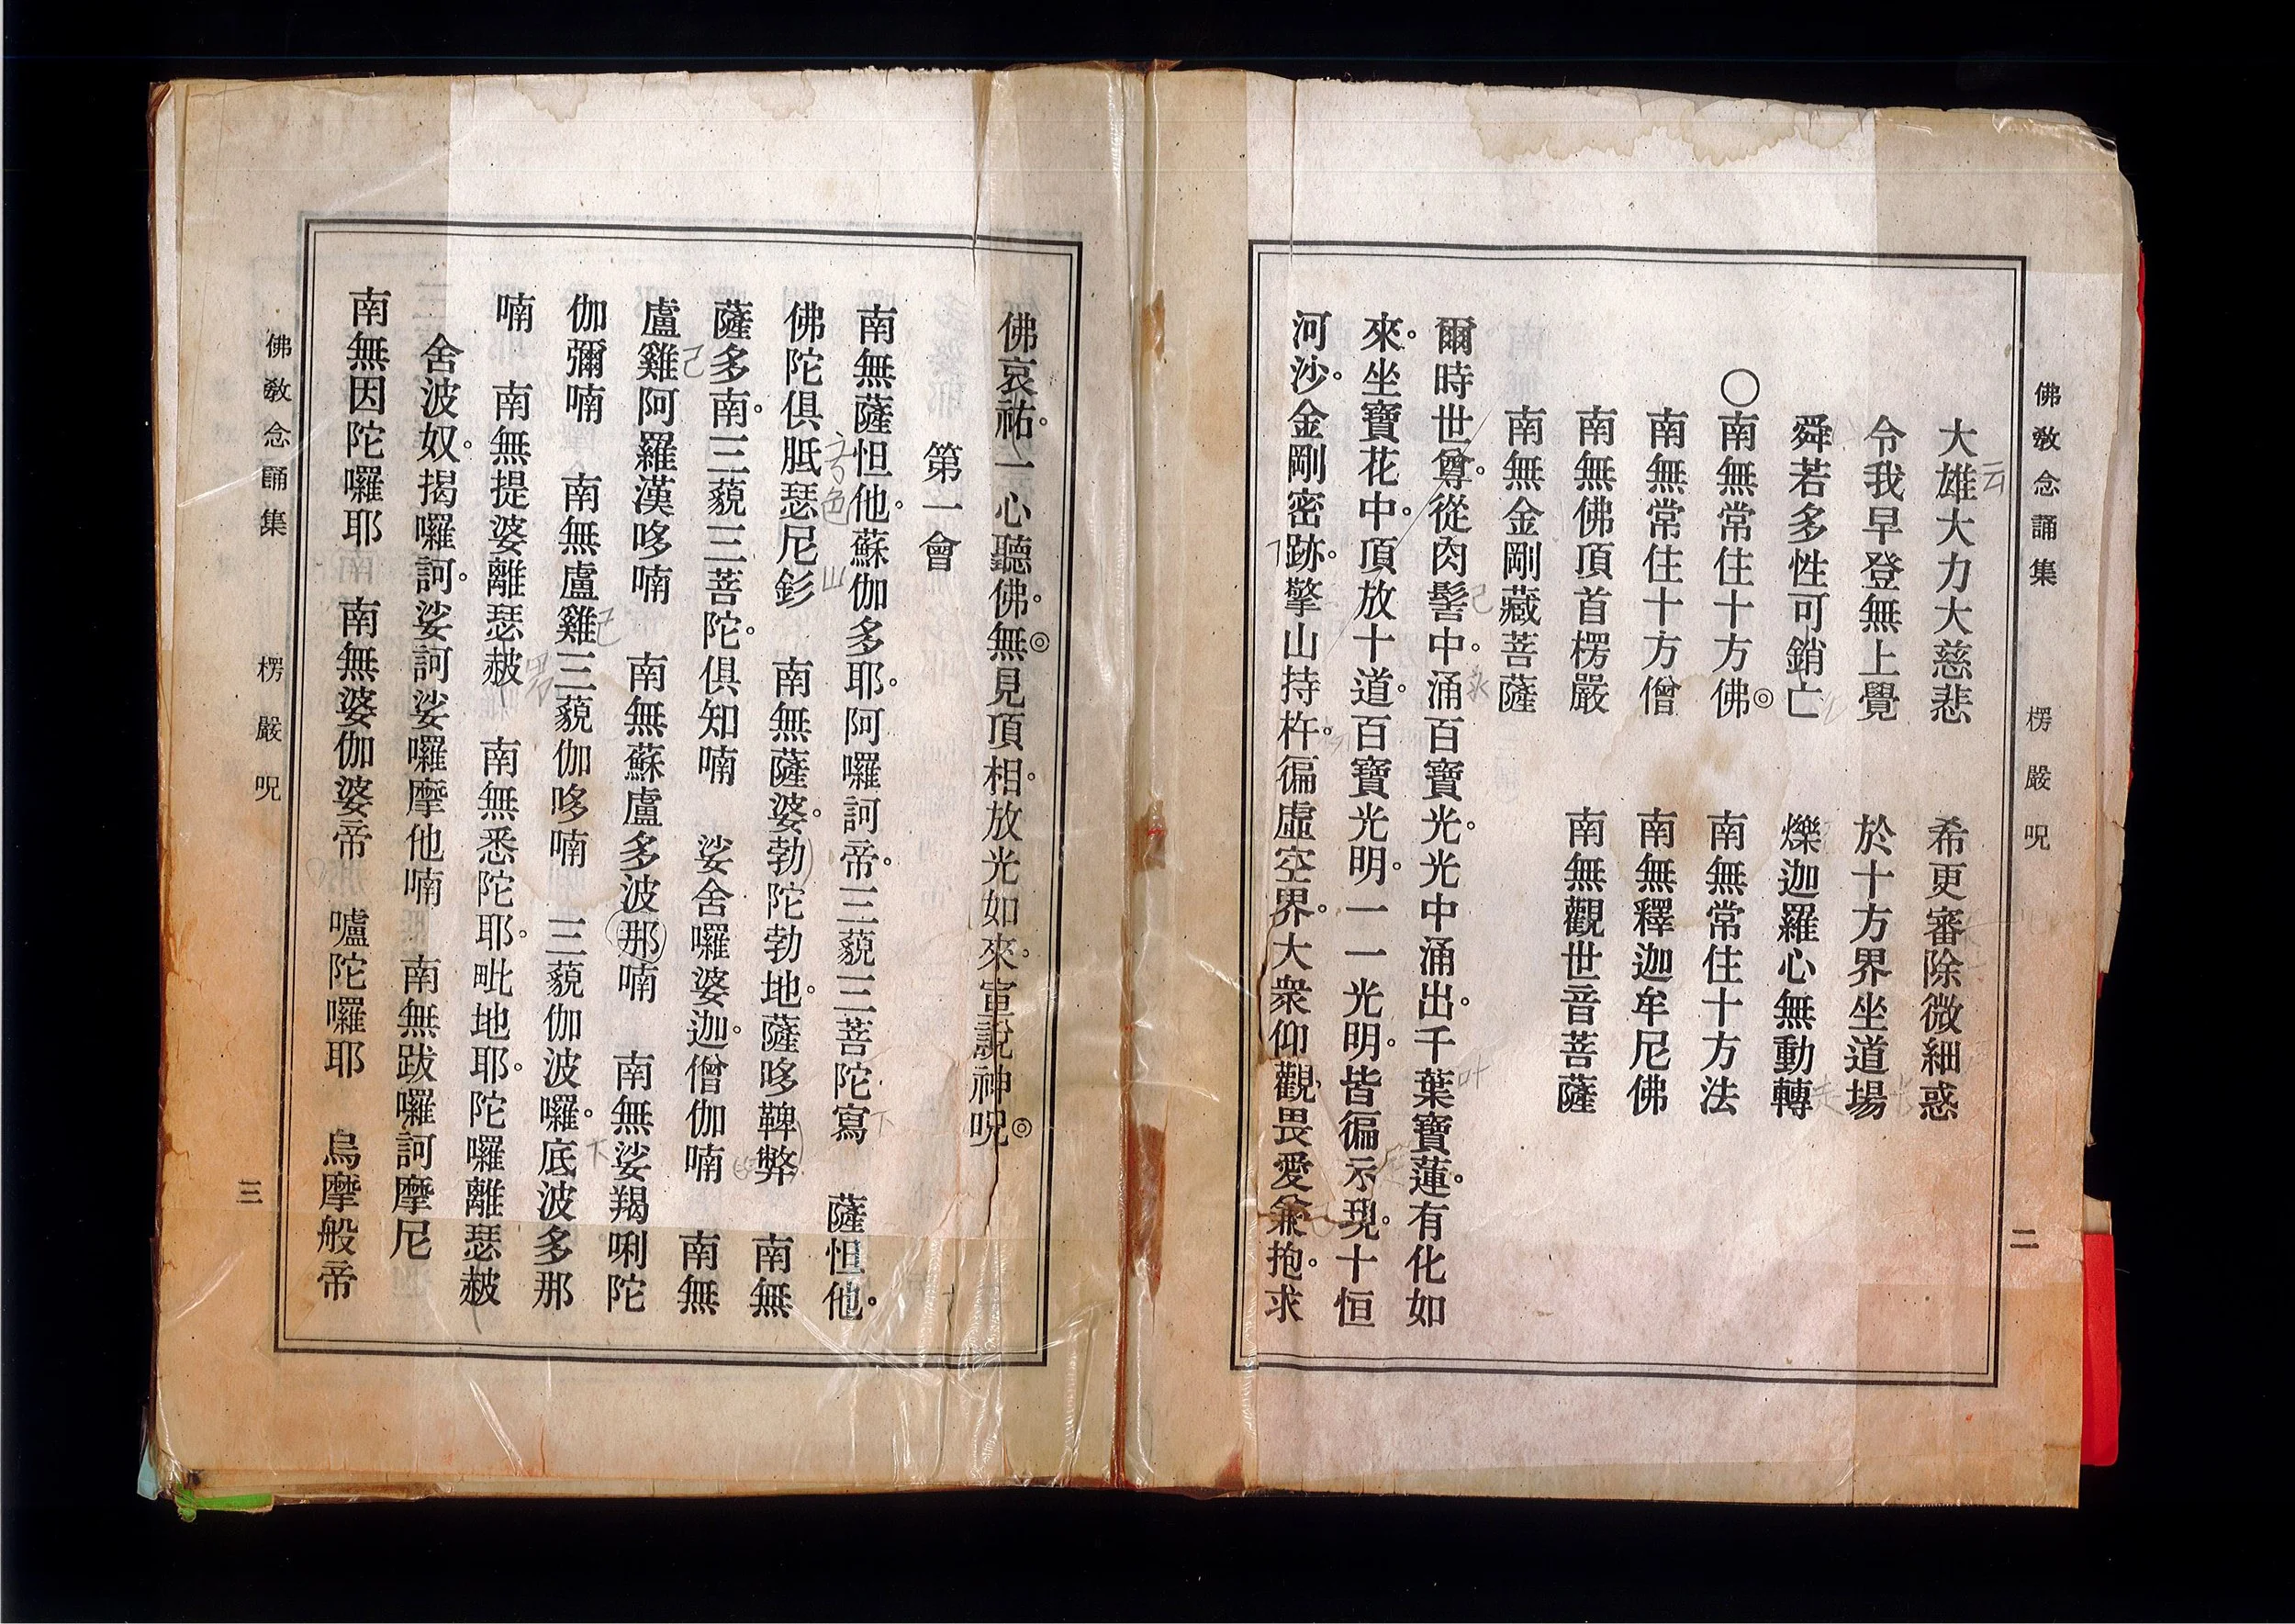 佛教念誦集　楞嚴呪　二
大雄大力大慈悲　希更審除微細惑
令我早登無上覺　於十方界坐道場
舜若多性可銷亡　爍迦羅心無動轉
○南無常住十方佛◎　南無常住十方法
南無常住十方僧　南無釋迦牟尼佛
南無佛頂首楞嚴　南無觀世音菩薩
南無金剛藏菩薩
爾時世尊。從肉髻中。涌百寶光。光中涌出。千葉寶蓮。有化如
來。坐寶花中。頂放十道。百寶光明。一一光明。皆徧示現。十恒
河沙。金剛密跡。擎山持杵。徧虛空界。大衆仰觀。畏愛兼抱。求
佛哀祐。一心聽佛。◎無見頂相。放光如來。宣說神呪◎
第一會
南無薩怛他。蘇伽多耶。阿囉訶帝。三藐三菩陀寫　薩怛他。
佛陀俱胝瑟尼釤　南無薩婆。勃陀勃地。薩哆鞞弊　南無
薩多南。三藐三菩陀。俱知喃　娑舍囉婆迦。僧伽喃　南無
盧雞阿羅漢哆喃　南無蘇盧多波那喃　南無娑羯唎陀
伽彌喃　南無盧雞三藐伽哆喃　三藐伽波囉。底波多那
喃　南無提婆離瑟赧　南無悉陀耶。毗地耶。陀囉離瑟赧
舍波奴。揭囉訶。娑訶娑囉摩他喃　南無跋囉訶摩尼
南無因陀囉耶　南無婆伽婆帝　嚧陀囉耶　烏摩般帝
佛教念誦集　楞嚴呪　三